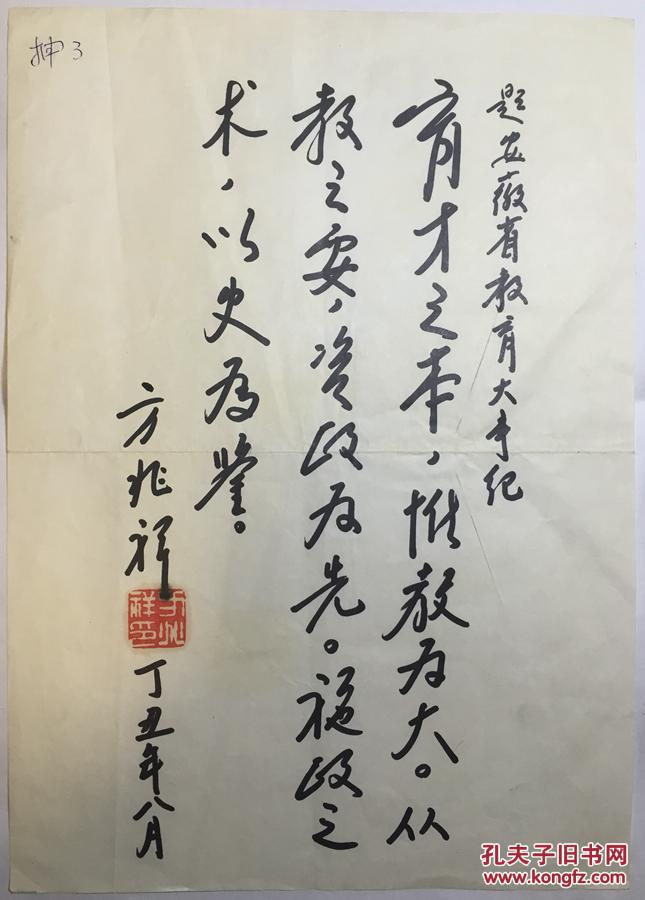 题安徽省教育大事纪
育才之本，惟教为大。从
教之要，资政为先。施政之
术，以史为鉴。
方兆祥
方兆祥印
丁丑年八月
抻3
孔夫子旧书网
www.kongfz.com